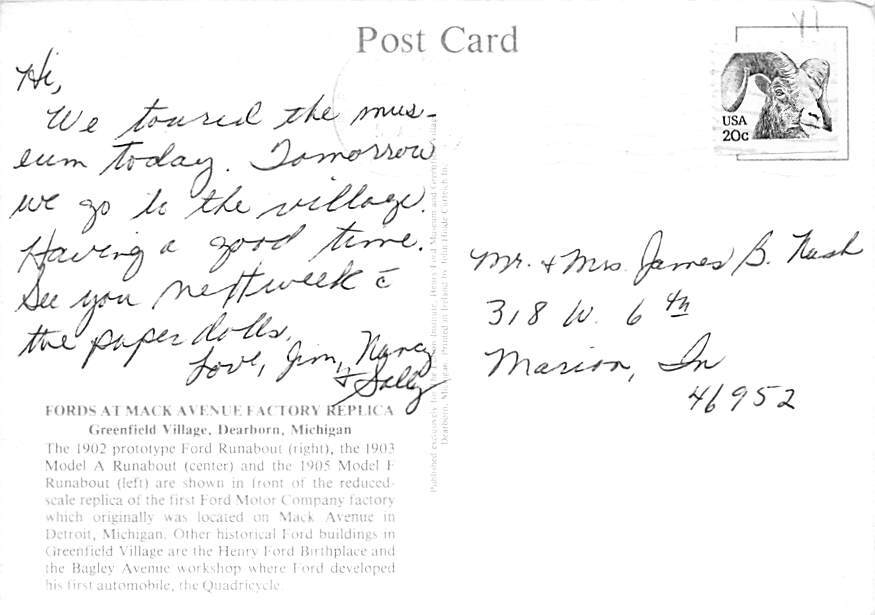 Post Card
USA
20c
Hi,
We toured the mus-
eum today. Tomorrow
we go to the village.
Having a good time.
See you next week c̄
the paper dolls.
Love, Jim, Nancy
+ Sally
Mr. + Mrs. James B. Nash
318 W. 6th
Marion, In
46952
FORDS AT MACK AVENUE FACTORY REPLICA
Greenfield Village, Dearborn, Michigan
The 1902 prototype Ford Runabout (right), the 1903
Model A Runabout (center) and the 1905 Model F
Runabout (left) are shown in front of the reduced-
scale replica of the first Ford Motor Company factory
which originally was located on Mack Avenue in
Detroit, Michigan. Other historical Ford buildings in
Greenfield Village are the Henry Ford Birthplace and
the Bagley Avenue workshop where Ford developed
his first automobile, the Quadricycle.
Published exclusively by the Edison Institute, Henry Ford Museum and Greenfield Village
Dearborn, Michigan. Printed in Ireland by John Hinde Curteich Inc.